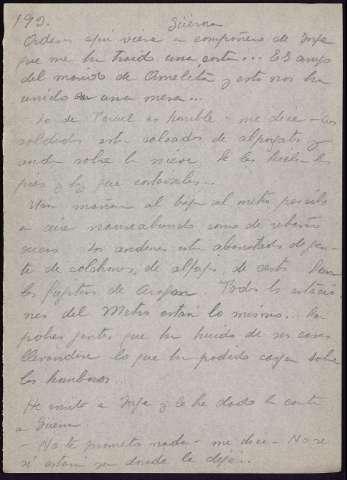 192.
Güerna
Ordena aquí viene a compañero de
que me ha traido una carta... Es amigo
del marido de Amelita y esto nos ha
unido a una mesa...
Lo de Teruel es horrible - me dice - Los
soldados estan calzados de alpargatas y
andan sobre la nieve. Se les hielan los
pies y hay que cortarselos...
Una mañana al bajar al metro percibo
a aire nauseabundo como de rebaño
sucio. Los andenes estan abarrotados de gen-
te de colchones, de de cestos. Son
los fugitivos de Aragon. Todas las estacio-
nes del Metro estan lo mismo... Las
pobres gentes que han huido de sus casas
llevandose lo que han podido coger sobre
los hombros
He visto a y le he dado la carta
a
- No te prometo nada - me dice - No se
si estara en donde la dejé...